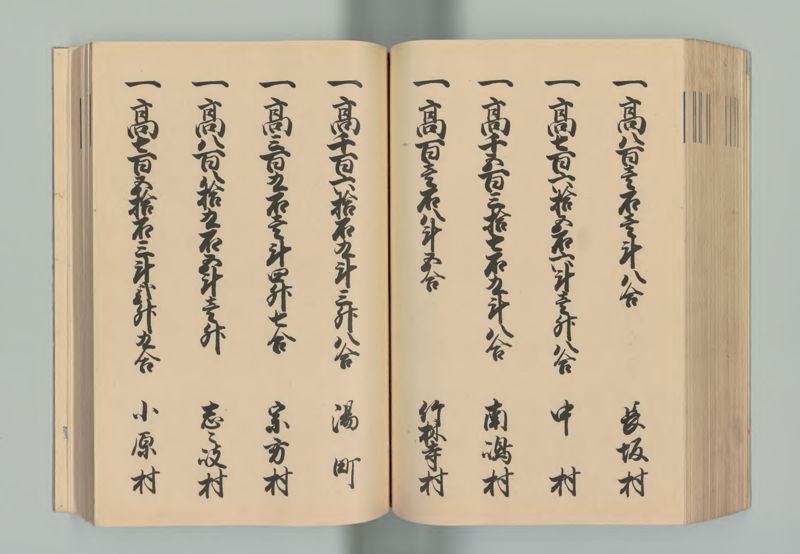 一高八百壱石壱斗八合 長坂村
一高七百六拾五石六斗壱升八合 中村
一高千五百三拾七石九斗八合 南嶋村
一高百壱石八斗五合 竹林寺村
一高千百六拾石九斗三升八合 湯町
一高三百五石壱斗四升七合 宗方村
一高八百八拾五石五斗壱升 志々岐村
一高七百五拾石三斗弐升九合 小原村